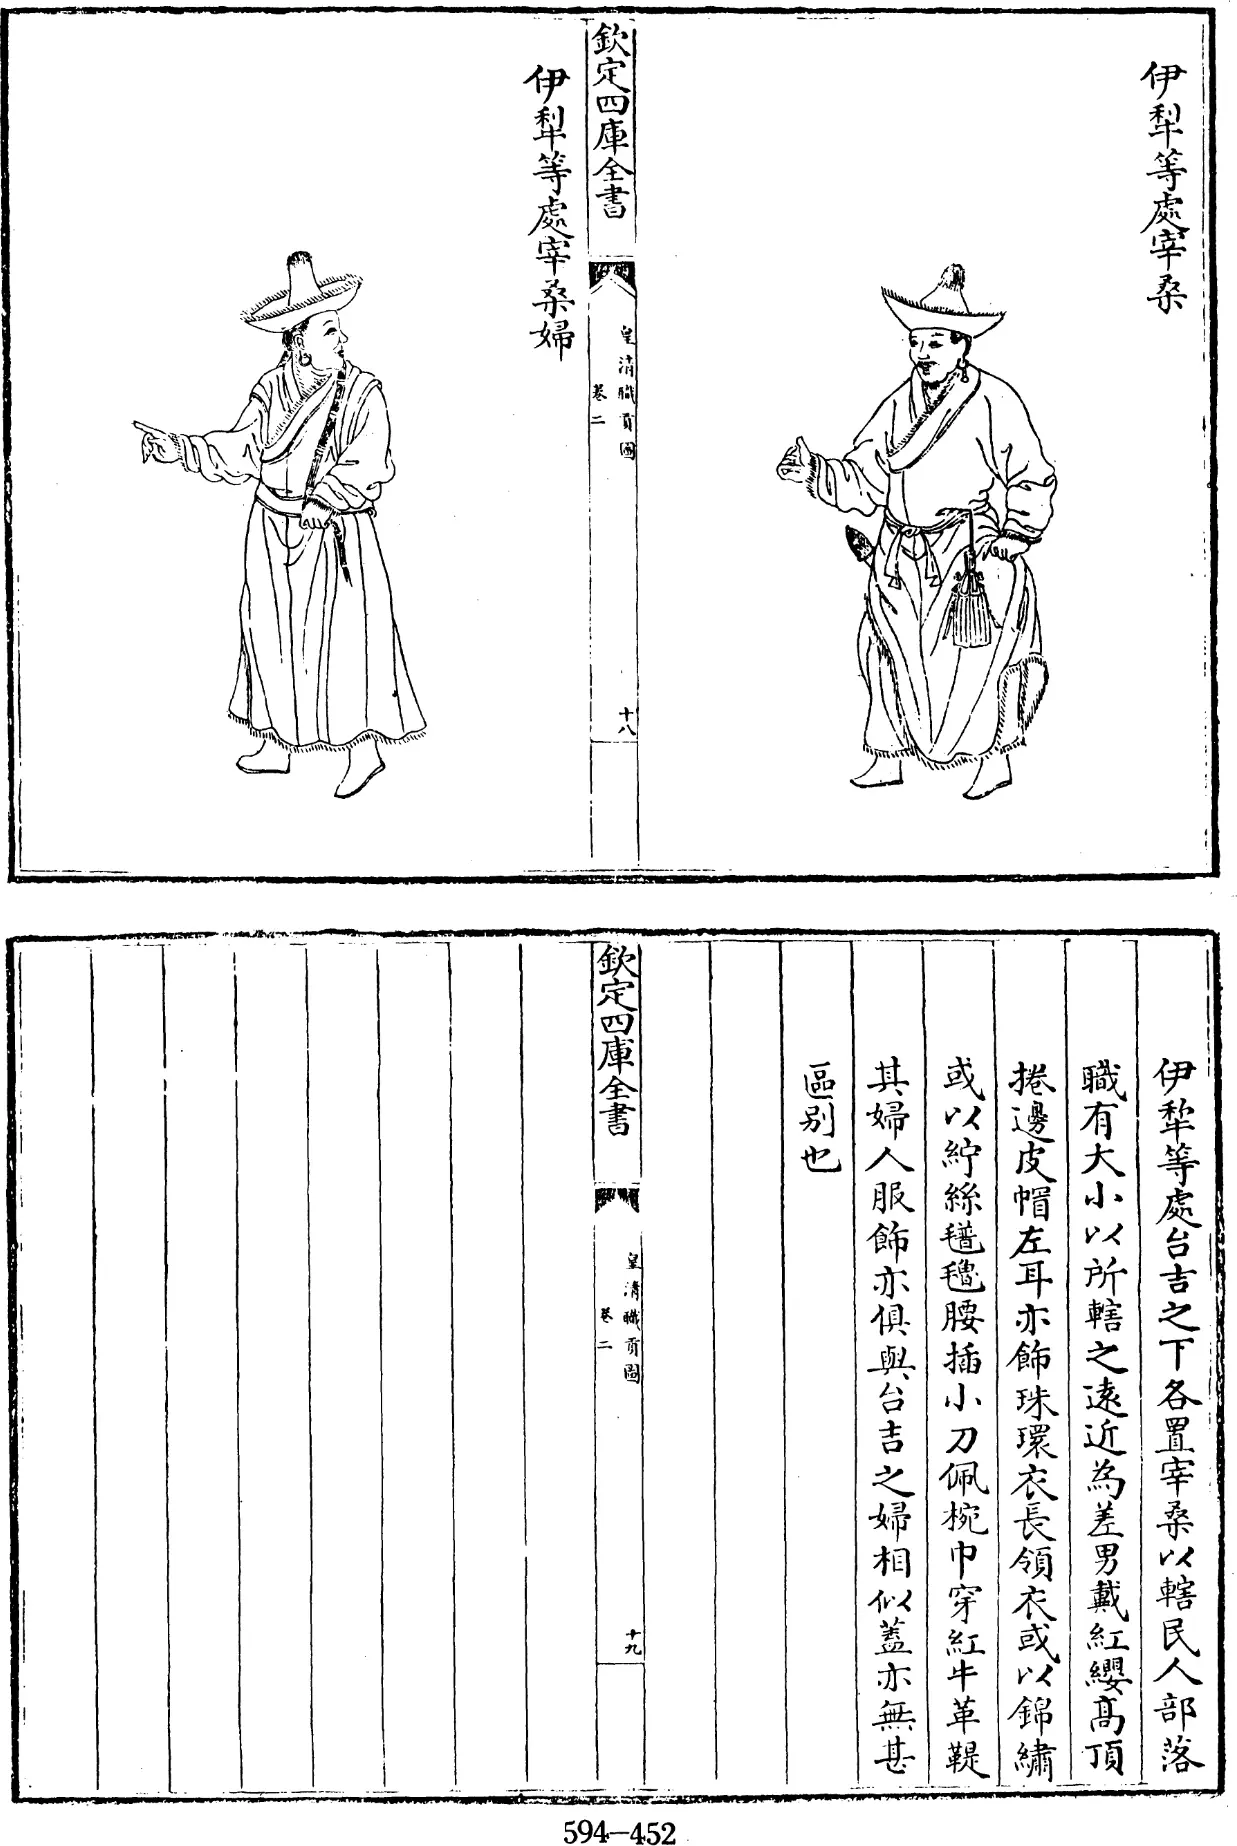 伊犂等處宰桑
欽定四庫全書
皇清職貢圖
卷二
十八
伊犂等處宰桑婦
伊犂等處台吉之下各置宰桑以轄民人部落
職有大小以所轄之遠近為差男戴紅纓髙頂
捲邊皮帽左耳亦飾珠環衣長領衣或以錦繡
或以紵絲氆氌腰插小刀佩椀巾穿紅牛革鞮
其婦人服飾亦俱與台吉之婦相似蓋亦無甚
區别也
欽定四庫全書
皇清職貢圖
卷二
十九
594-452